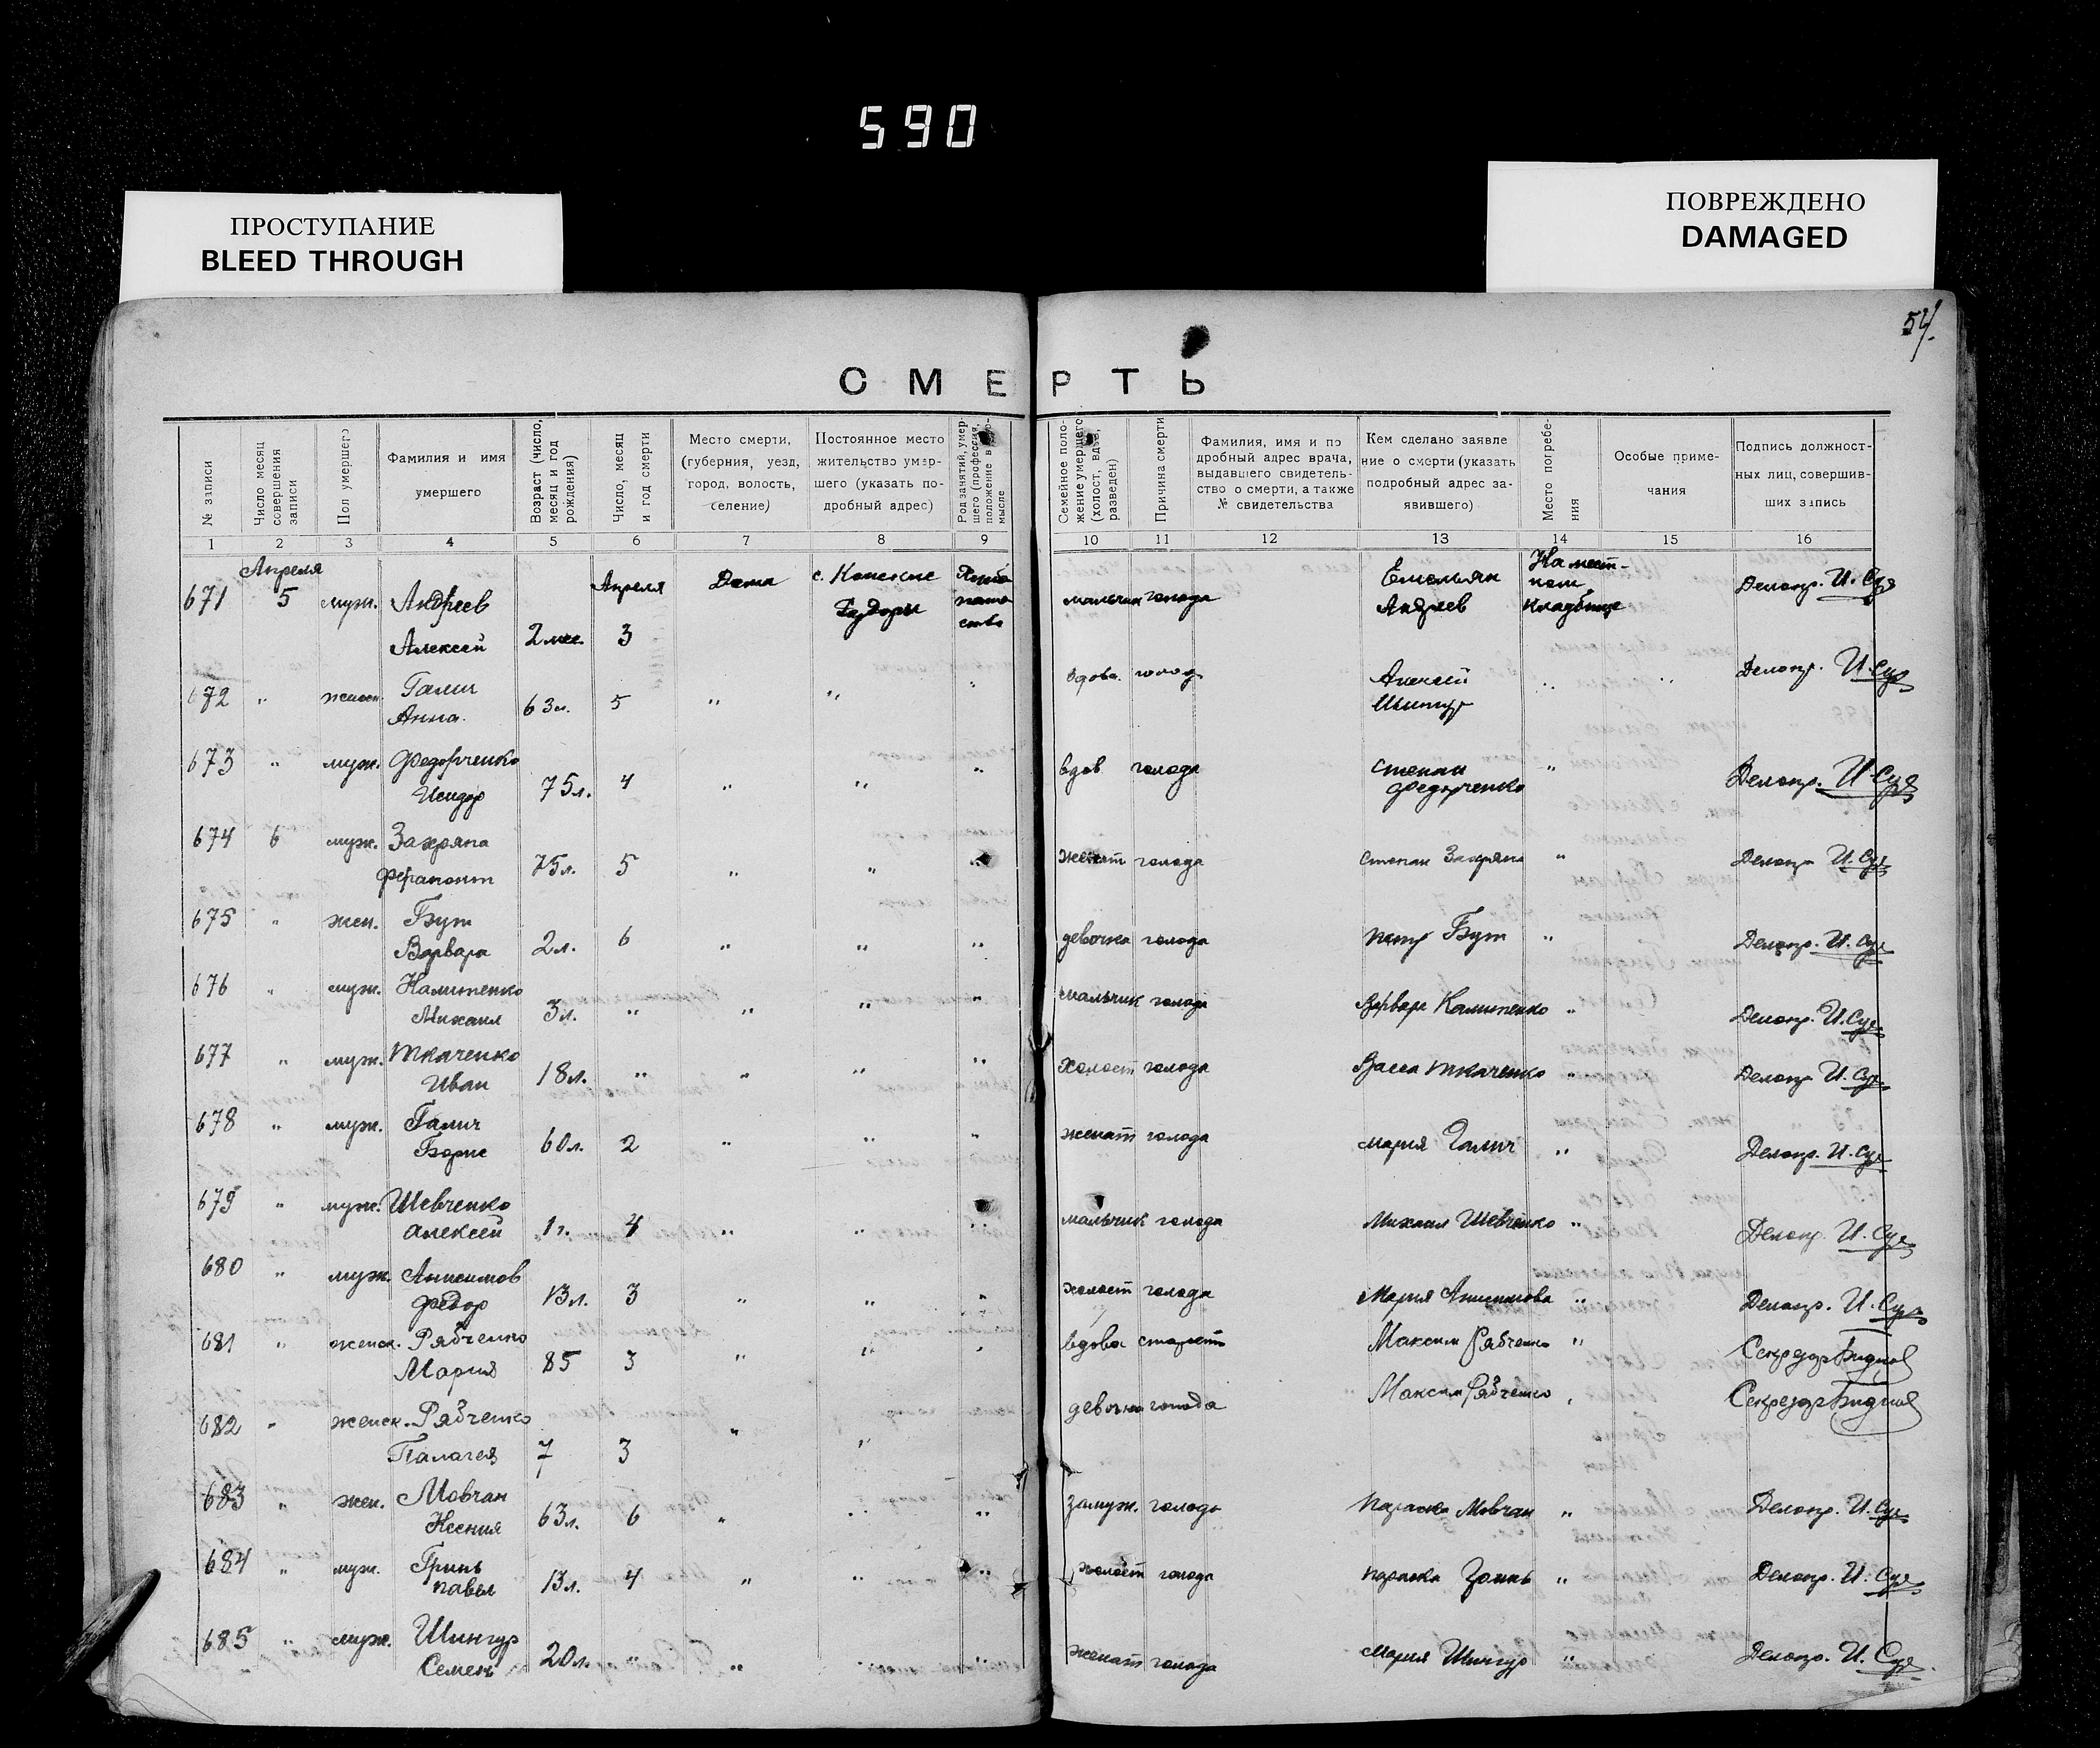 590
ПРОСТУПАНИЕ
BLEED THROUGH
ПОВРЕЖДЕНО
DAMAGED
54.
СМЕРТЬ
№ записи
Число месяц совершения записи
Пол умершего
Фамилия и имя умершего
Возраст (число, месяц и год рождения)
Число, месяц и год смерти
Место смерти, (губерния, уезд, город, волость, селение)
Постоянное место жительство умершего (указать подробный адрес)
Род занятий, умершего (профессия, положение в промысле
Семейное положение умершего (холост, вдов, разведен)
Причина смерти
Фамилия, имя и подробный адрес врача, выдавшего свидетельство о смерти, а также № свидетельства
Кем сделано заявление о смерти (указать подробный адрес заявившего)
Место погребения
Особые примечания
Подпись должностных лиц, совершивших запись
1 2 3 4 5 6 7 8 9 10 11 12 13 14 15 16
671 Апреля 5 муж. Андреев Алексей 2 мес. Апреля 3 Дома с. мальчик голода Емельян Андреев На местном кладбище Делопр. И. Суд
672 " женск. Галич Анна 63 л. 5 " " вдова голод Алексей " " Делопр. И. Суд
673 " муж. Федорченко Исидор 75 л. 4 " " " вдов голода степан Федорченко " Делопр. И. Суд
674 6 муж. Захряпа Ферапонт 75 л. 5 " " " женат голода степан Захряпа " Делопр И. Суд
675 " жен. Бут Варвара 2 л. 6 " " " девочка голода петр Бут " Делопр. И. Суд
676 " муж. Калитенко Михаил 3 л. " " " " мальчик голода Варвара Калитенко " Делопр. И. Суд
677 " муж. Ткаченко Иван 18 л. " " " " холост голода Васса Ткаченко " Делопр И. Суд
678 " муж. Галич Борис 60 л. 2 " " " женат голода мария Галич " Делопр. И. Суд
679 " муж. Шевченко Алексей 1 г. 4 " " " мальчик голода Михаил Шевченко " Делопр. И. Суд
680 " муж. Анисимов Федор 13 л. 3 " " " холост голода Мария Анисимова " Делопр. И. Суд
681 " женск. Рябченко Мария 85 3 " " " вдова старост Максим Рябченко "
682 " женск. Рябченко Палагея 7 3 " " девочка голода Максим Рябченко "
683 " жен. Мовчан Ксения 63 л. 6 " " " замуж. голода параска Мовчан " Делопр. И. Суд
684 " муж. Гринь павел 13 л. 4 " " " холост голода параска " Делопр. И. Суд
685 " муж. Шингур Семен 20 л. " " " " женат голода Мария Шингур " Делопр. И. Суд